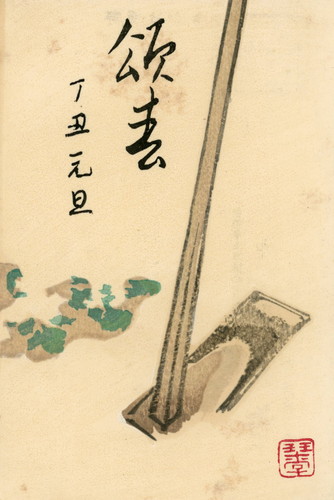 頌春
丁丑一元旦